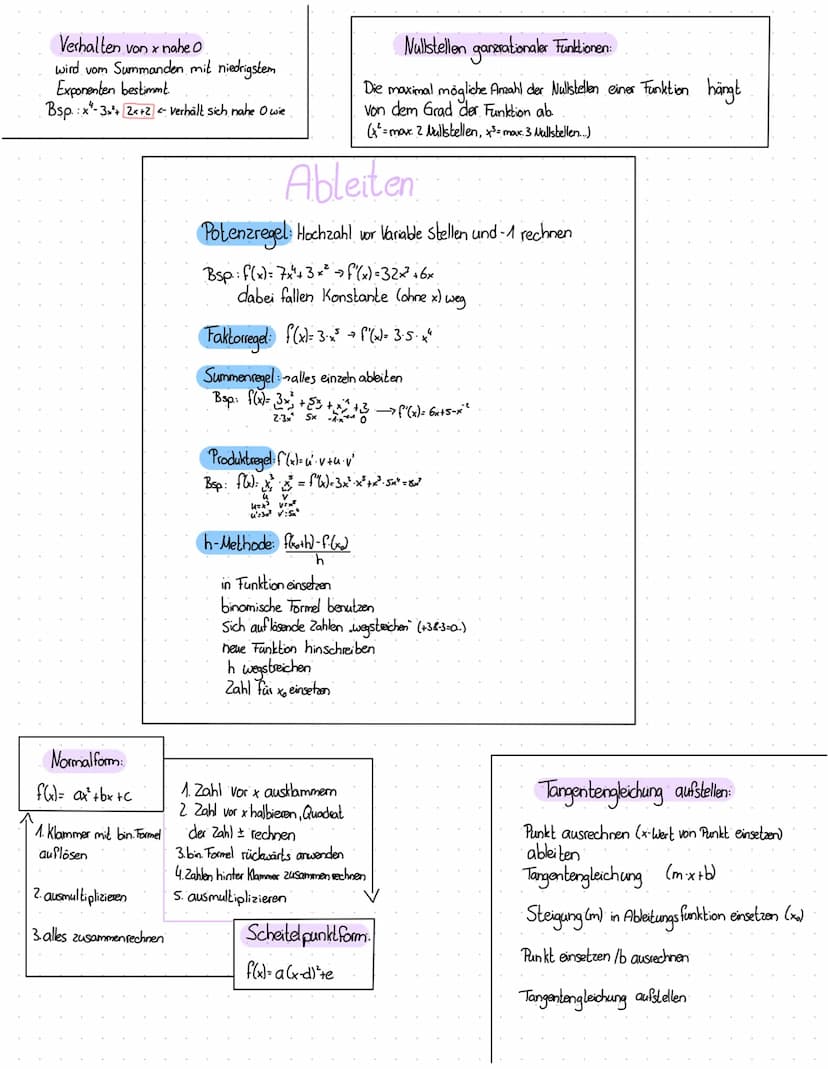 Verhalten von x nahe 0
wird vom Summanden mit niedrigstem
Exponenten bestimmt
Bsp.: x⁴-3x²+ 2x+2 ← verhält sich nahe 0 wie
Nullstellen ganzrationaler Funktionen:
Die maximal mögliche Anzahl der Nullstellen einer Funktion hängt
von dem Grad der Funktion ab.
(x²= max. 2 Nullstellen, x³= max. 3 Nullstellen...)
Ableiten
Potenzregel: Hochzahl vor Variable stellen und -1 rechnen
Bsp.: f(x)= 7x⁴+3x² → f'(x)=32x³+6x
dabei fallen Konstante (ohne x) weg
Faktorregel: f(x)= 3·x⁵ → f'(x)= 3·5·x⁴
Summenregel: → alles einzeln ableiten
Bsp.: f(x)= 3x² + 5x + x⁻¹ + 3 → f'(x)= 6x+5-x⁻²
5x 0
Produktregel: f'(x)= u'·v+u·v'
Bsp: f(x)= x³ · x⁵ = f'(x)=3x²·x⁵+x³·5x⁴=8x⁷
u v
u=x³ v=x⁵
u'=3x² v'=5x⁴
h-Methode: f(x₀+h)-f(x₀)
h
in Funktion einsetzen
binomische Formel benutzen
Sich auflösende Zahlen „wegstreichen" (+3&-3=0..)
neue Funktion hinschreiben
h wegstreichen
Zahl für x₀ einsetzen
Normalform:
f(x)= ax²+bx+c
1. Klammer mit bin. Formel
auflösen
2. ausmultiplizieren
3. alles zusammenrechnen
1. Zahl vor x ausklammern
2 Zahl vor x halbieren, Quadrat
der Zahl ± rechnen
3. bin. Formel rückwärts anwenden
4. Zahlen hinter Klammer zusammenrechnen
5. ausmultiplizieren
Scheitelpunktform.
f(x)= a(x-d)²+e
Tangentengleichung aufstellen:
Punkt ausrechnen (x-Wert von Punkt einsetzen)
ableiten
Tangentengleichung (m·x+b)
Steigung (m) in Ableitungsfunktion einsetzen (x₀)
Punkt einsetzen /b ausrechnen
Tangentengleichung aufstellen